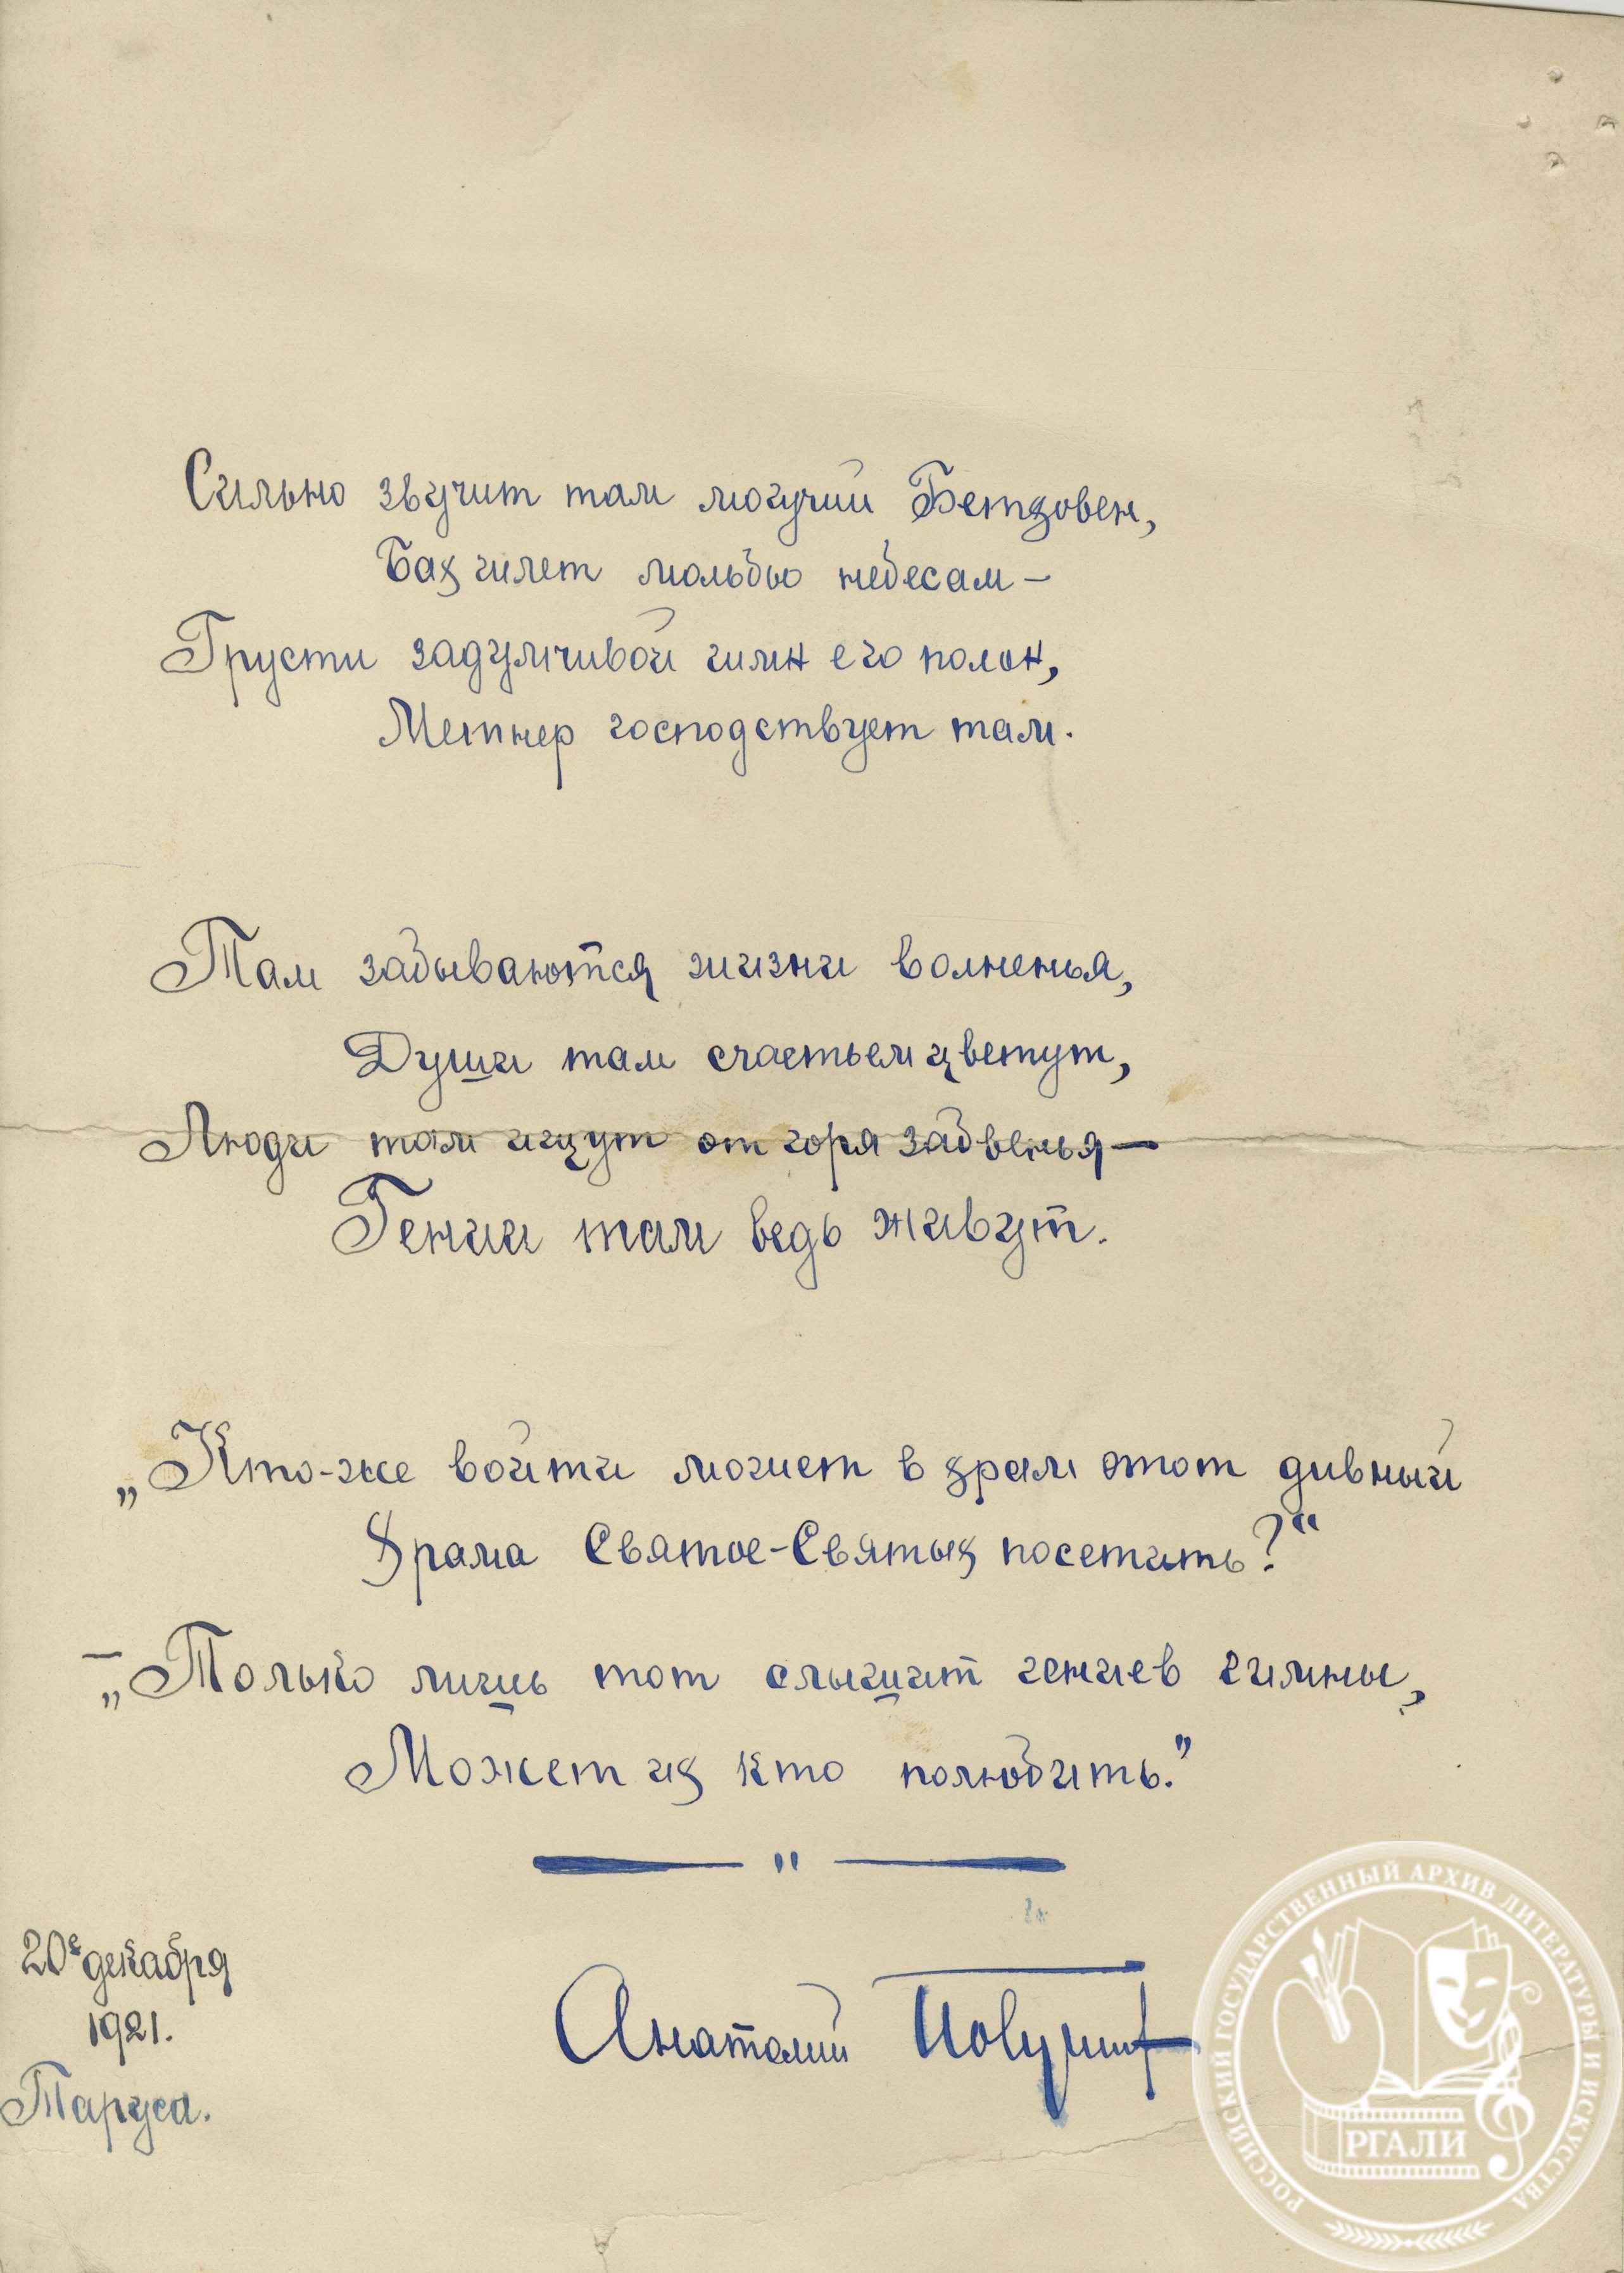 Сильно звучит там могучий Бетховен,
Бах шлет мольбы небесам –
Грусти задумчивой гимн его полон,
Метнер господствует там.
Там забываются жизни волненья,
Души там счастьем цветут,
Люди там ищут от горя забвенья –
Гении там ведь живут.
„Кто-же войти может в храм этот дивный
Храма Святое-Святых посетить?“
– „Только лишь тот слышит гениев гимны,
Может их кто полюбить."
— " —
20е декабря
1921.
Таруса.
Анатолий
РОССИЙСКИЙ ГОСУДАРСТВЕННЫЙ АРХИВ ЛИТЕРАТУРЫ И ИСКУССТВА
РГАЛИ